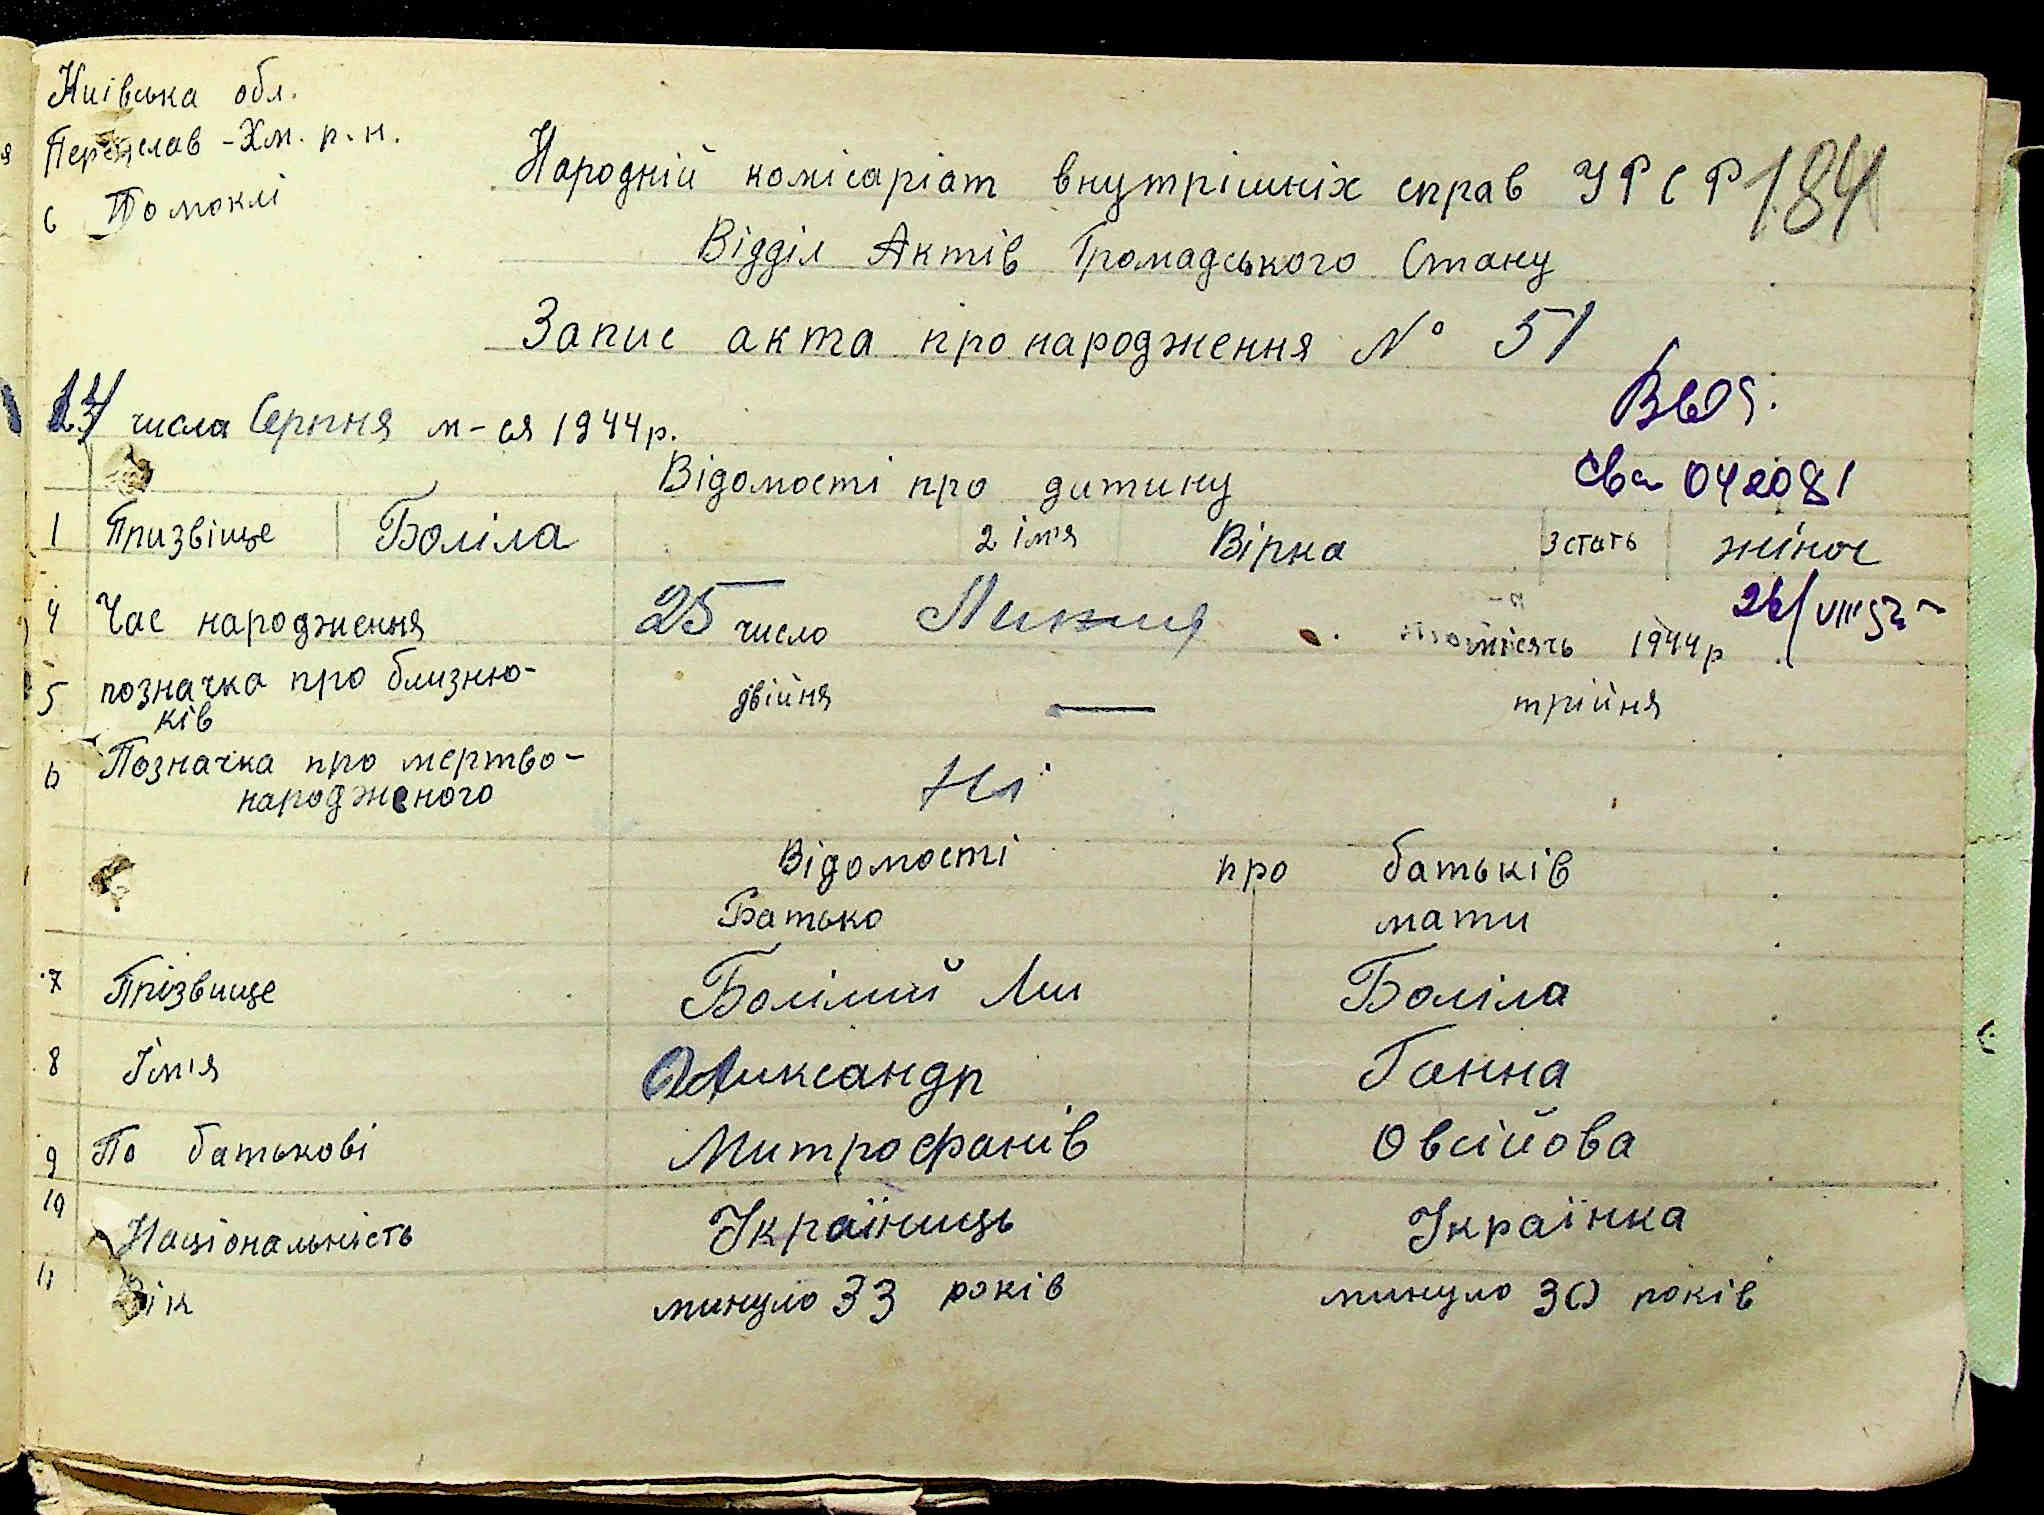 Київська обл.
Переяслав-Хм. р-н.
с Помоклі
Народній комісаріат внутрішніх справ УРСР 184
Відділ Актів Громадського Стану
Запис акта про народження № 51
числа Серпня м-ся 1944р.
Відомості про дитину
Св 042081
1 Призвіще Боліла 2 ім'я Вірка 3 стать жіноч
4 Час народження 25 число Липня місячь 1944р
5 позначка про близню-
ків двійня — трійня
6 Позначка про мертво-
народженого Ні
Відомості про батьків
Батько мати
7 Прізвище Болілий Боліла
8 Їм'я Олександр Ганна
9 По батькові Митрофанів Овсійова
10 Національність Україниць Українка
11 Вік минуло 33 років минуло 30 років